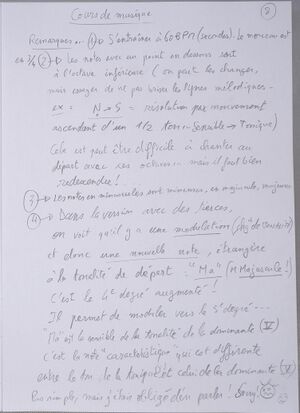 Cours de musique
②
Remarques... ① → S'entraîner à 60 BPM (secondes). Le morceau est
en 3/4 ② → Les notes avec un point en dessous sont
à l'octave inférieure (on peut les changer,
mais essayer de ne pas briser les lignes mélodiques -
ex = N → S = résolution par mouvement
ascendant d'un 1/2 ton - Sensible → Tonique)
Cela est peut être difficile à chanter au
départ avec ces octaves... mais il faut bien
redescendre !..
③ → Les notes en minuscules sont mineures, en majuscule, majeures
④ → Dans la version avec des tierces,
on voit qu'il y a une modulation (chgt de tonalité)
et donc une nouvelle note, étrangère
à la tonalité de départ = "Ma" (M Majuscule !)
C'est le 4e degré augmenté !
Il permet de moduler vers le 5e degré...
"Ma" est la sensible de la tonalité de la dominante (V)
C'est la note "caractéristique" qui est différente
entre le ton de la tonique et celui de la dominante (V)
Pas simple, mais j'étais obligé d'en parler ! Sorry !